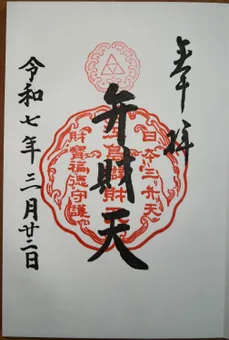 奉拝
日本三弁天
弁財天
財寶福徳守護
令和七年三月廿二日